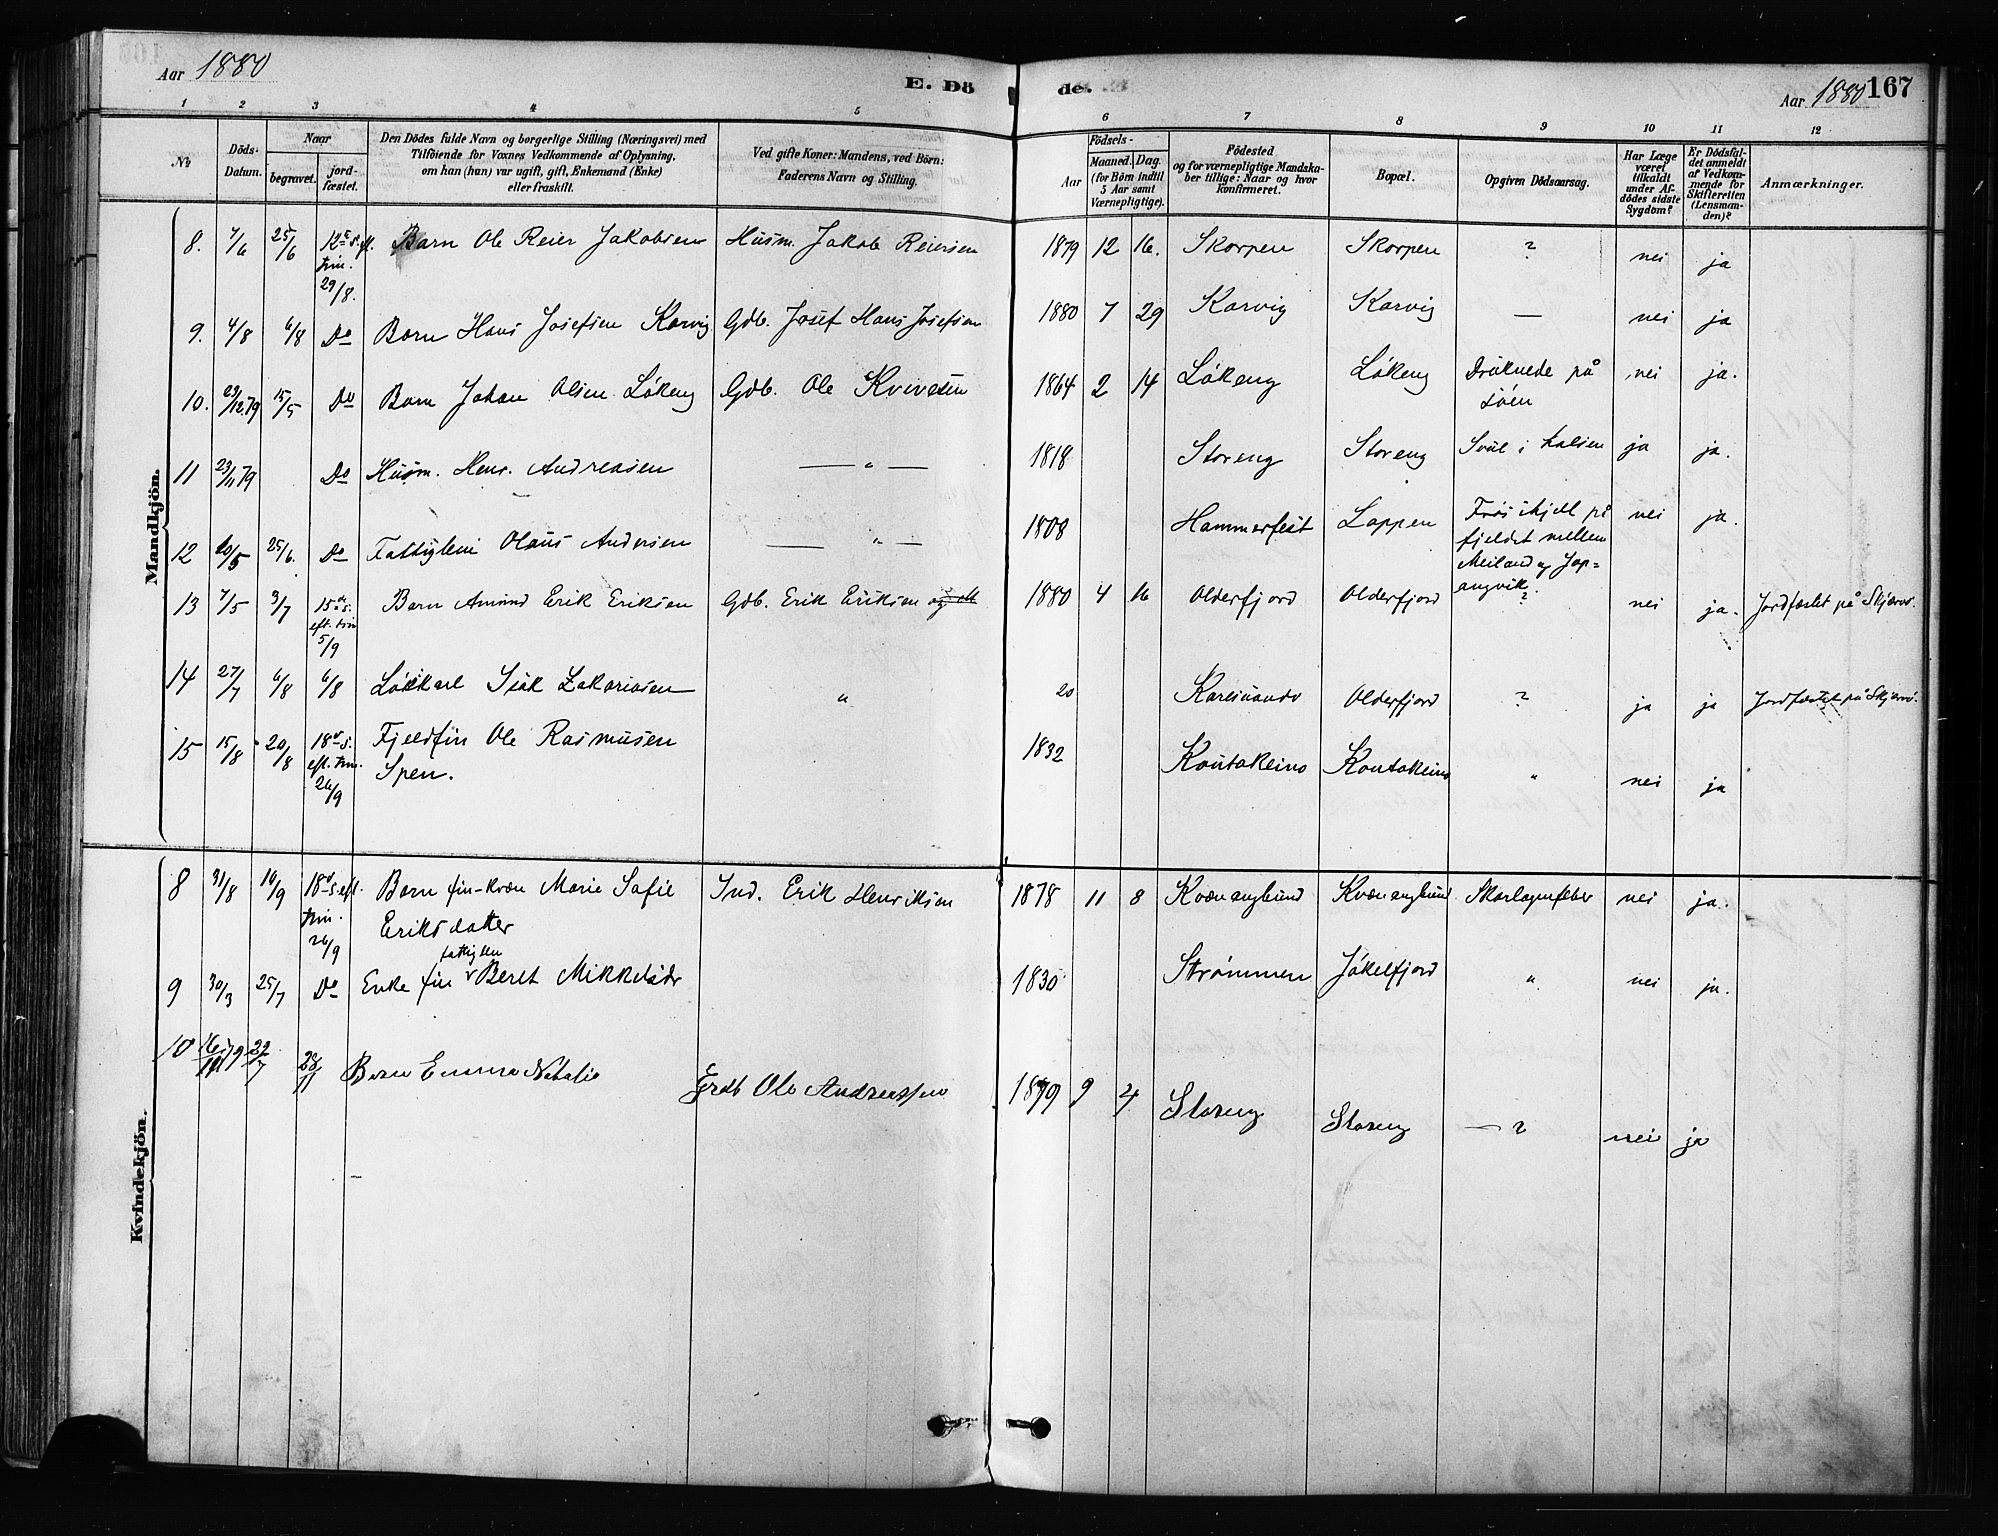 Aar 1880
E. Dö
de.
Aar 1880
167
1 2 3 4 5 6 7 8 9 10 11 12
No.
Döds-
Datum.
Naar
begravet.
jord-
fæstet.
Den Dödes fulde Navn og borgerlige Stilling (Næringsvei) med
Tilföiende for Voxnes Vedkommende af Oplysning,
om han (hun) var ugift, gift, Enkemand (Enke)
eller fraskilt.
Ved gifte Koner: Mandens, ved Börn:
Faderens Navn og Stilling.
Födsels-
Aar
Maaned. Dag.
(for Börn indtil
5 Aar samt
Værnepligtige).
Födested
og for værnepligtige Mandska-
ber tillige: Naar og hvor
konfirmeret.
Bopæl.
Opgiven Dödsaarsag.
Har Læge
været
tilkaldt
under Af-
dödes sidste
Sygdom?
Er Dödsfal-
det anmeldt
af Vedkom-
mende for
Skifteretten
(Lensman-
den)?
Anmærkninger.
Mandkjön.
8. 7/6 25/6 12te S. eft. trin. 29/8. Barn Ole Reier Jakobsen Husm. Jakob Reiersen 1879 12 16. Skorpen Skorpen ? nei ja
9. 4/8 6/8 Do Barn Hans Josefsen Karvig Gdb. Josef Hans Josefsen 1880 7 29 Karvig Karvig — nei ja
10. 23/12 79 15/5 Do Barn Johan Olsen Løkeng Gdb. Ole 1864 2 14 Løkeng Løkeng Druknede på
Søen nei ja.
11 23/11 79 Do Husm. Henr. Andreasen — " — 1818 Storeng Storeng Svul i halsen ja ja.
12 20/5 25/6. Do Fattiglem Olaus Andersen — " — 1808 Hammerfest Loppen Frøs ihjel på
fjeldet mellem
Meiland og Jøp=
angvik. nei ja.
13 7/5 3/7 15de S. eft. trin 5/9 Barn Amund Erik Eriksen Gdb. Erik Eriksen 1880 4 16 Olderfjord Olderfjord ? nei ja. Jordfæstet på Skjervø.
14 27/7 6/8 6/8 Løskarl Isak Zakariasen " 20 Karesuando Olderfjord ? ja ja Jordfæstet på Skjervø.
15 15/8 20/8 18de S. eft. trin. 26/9 Fjeldfin Ole Rasmusen
Spen. 1832 Koutokeino Koutokeino " nei ja
Kvindekjön.
8 31/8 10/9 18de S. eft. trin. 26/9 Barn fin-kvæn Marie Sofie
Eriksdatter Ind. Erik Henriksen 1878 11 8 Kvænangsund Kvænangsund Skarlagensfeber nei ja.
9 30/3 25/7 Do Enke fin fattiglem Beret Mikkelsdr 1830 Strømmen Jøkelfjord " nei ja.
10 16/11 79 22/7 28/11 Barn Emma Natalie Grdb Ole Andreassen 1879 9 4 Storeng Storeng — ? nei ja